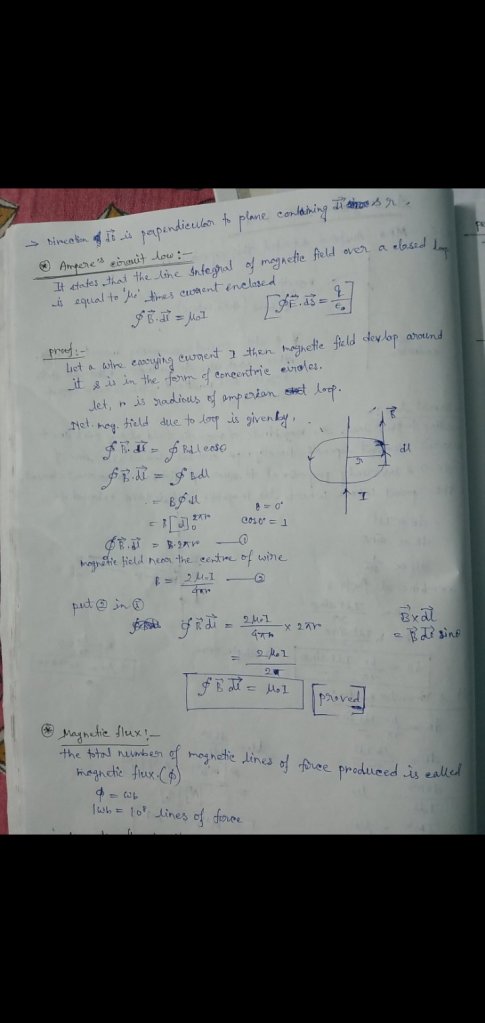 → Direction of dB is perpendicular to plane containing dl & r.
* Ampere's circuit law:-
It states that the line integral of magnetic field over a closed loop
is equal to 'μ₀' times current enclosed
∮B⃗.dl⃗ = μ₀I [∮E⃗.ds⃗ = q/ε₀]
proof:-
Let a wire carrying current I then magnetic field devlop around
it & is in the form of concentric circles.
let, r is radious of amperian loop.
Net. mag. field due to loop is given by,
∮B⃗.dl⃗ = ∮Bdl cosθ
∮B⃗.dl⃗ = ∮Bdl
= B∮dl θ = 0°
= B[l]₀^2πr cos0° = 1
∮B⃗.dl⃗ = B.2πr —①
magnetic field near the centre of wire
B = 2μ₀I/4πr —②
put ② in ①
∮B⃗.dl⃗ = 2μ₀I/4πr × 2πr
= 2μ₀I/2
∮B⃗.dl⃗ = μ₀I [proved]
B⃗
dl
r
I
B⃗×dl⃗
= B⃗dl⃗ sinθ
* Magnetic flux:-
the total number of magnetic lines of force produced is called
magnetic flux.(ϕ)
ϕ = wb
1wb = 10⁸ lines of force